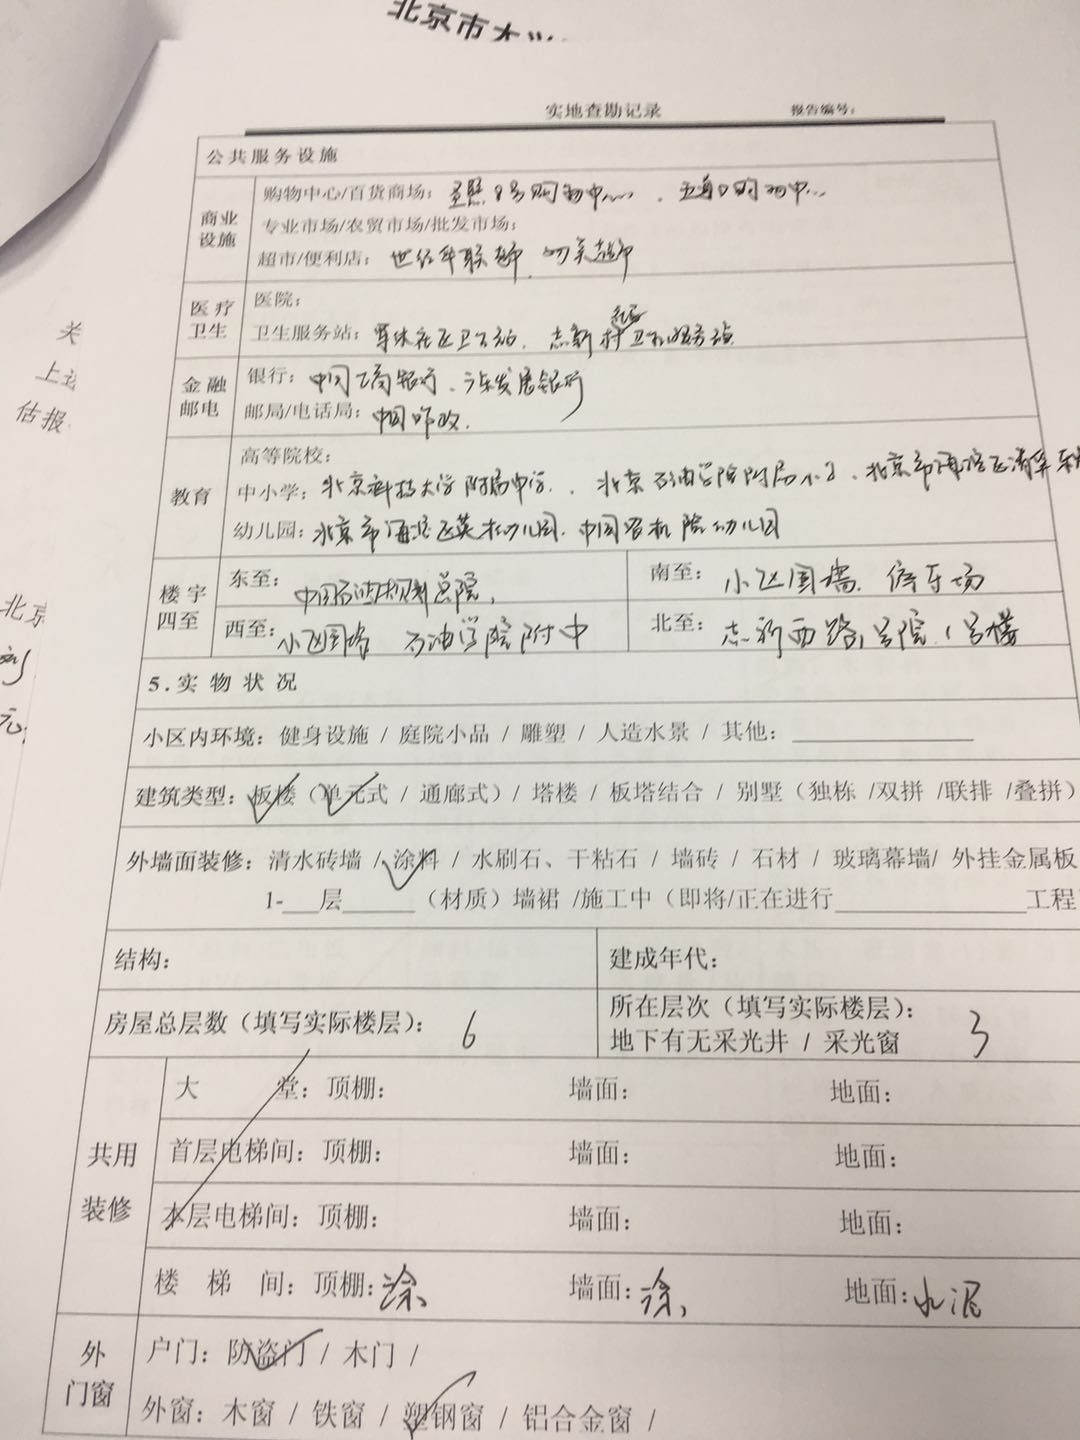 北京市
实地查勘记录 报告编号：
公共服务设施
商业设施
购物中心/百货商场： 圣熙8号购物中心、五道口购物中心
专业市场/农贸市场/批发市场：
超市/便利店： 世纪华联超市、物美超市
医疗卫生
医院：
卫生服务站： 军休社区卫生站、志新村社区卫生服务站
金融邮电
银行： 中国工商银行、广东发展银行
邮局/电话局： 中国邮政.
教育
高等院校：
中小学： 北京科技大学附属中学、北京石油学院附属小学、北京市海淀区清华东
幼儿园： 北京市海淀区英才幼儿园、中国农机院幼儿园
楼宇四至
东至： 中国石油规划总院、
南至： 小区围墙、停车场
西至： 小区围墙 石油学院附中
北至： 志新西路1号院、1号楼
5.实物状况
小区内环境：健身设施 / 庭院小品 / 雕塑 / 人造水景 / 其他：
建筑类型：板楼（单元式 / 通廊式）/ 塔楼 / 板塔结合 / 别墅（独栋 /双拼 /联排 /叠拼）
外墙面装修：清水砖墙 / 涂料 / 水刷石、干粘石 / 墙砖 / 石材 / 玻璃幕墙/ 外挂金属板
1-___层______（材质）墙裙 /施工中（即将/正在进行________________工程
结构：
建成年代：
房屋总层数（填写实际楼层）： 6
所在层次（填写实际楼层）：
地下有无采光井 / 采光窗 3
共用装修
大 堂：顶棚： 墙面： 地面：
首层电梯间：顶棚： 墙面： 地面：
本层电梯间：顶棚： 墙面： 地面：
楼 梯 间：顶棚：涂、 墙面：涂、 地面：水泥
外门窗
户门：防盗门 / 木门 /
外窗：木窗 / 铁窗 / 塑钢窗 / 铝合金窗 /
关
上述
估报
北京
元